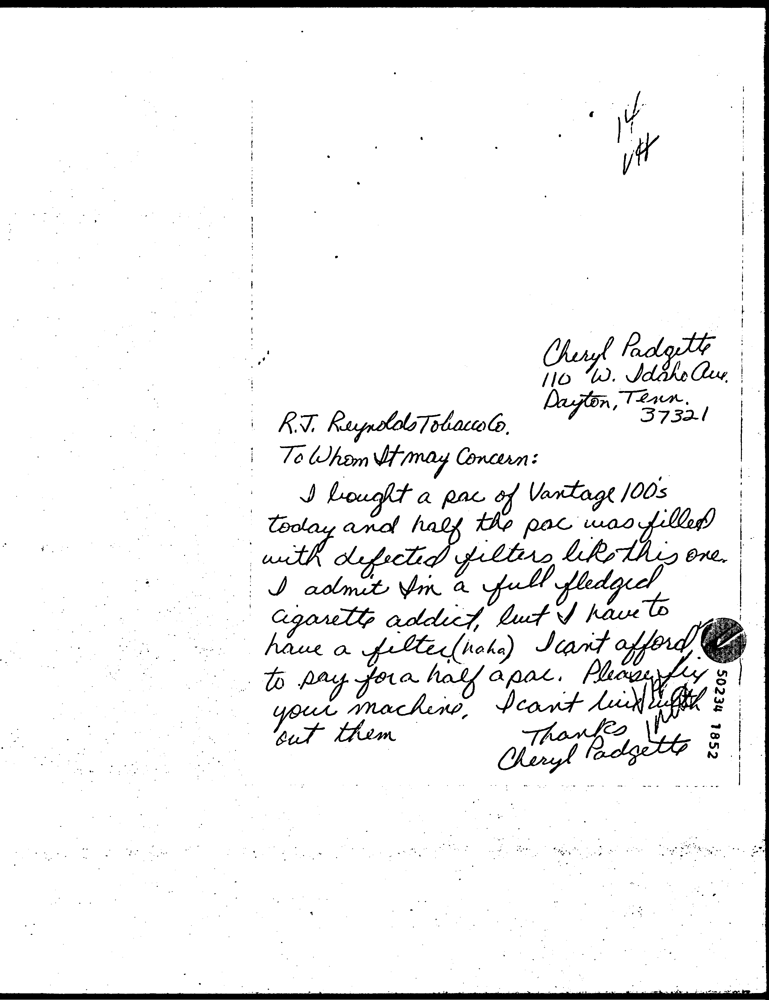 14
VH
Cheryl Padgette
110 W. Idaho Ave.
Dayton, Tenn.
37321
R.J. Reynolds Tobacco Co.
To Whom It may Concern:
I bought a pac of Vantage 100's
today and half the pac was filled
with defected filters like this one.
I admit I'm a full fledged
cigarette addict, but I have to
have a filter (haha) I cant afford
to pay for a half a pac. Please fix
your machine, I cant live with
out them
Thanks
Cheryl Padgette
50234 1852